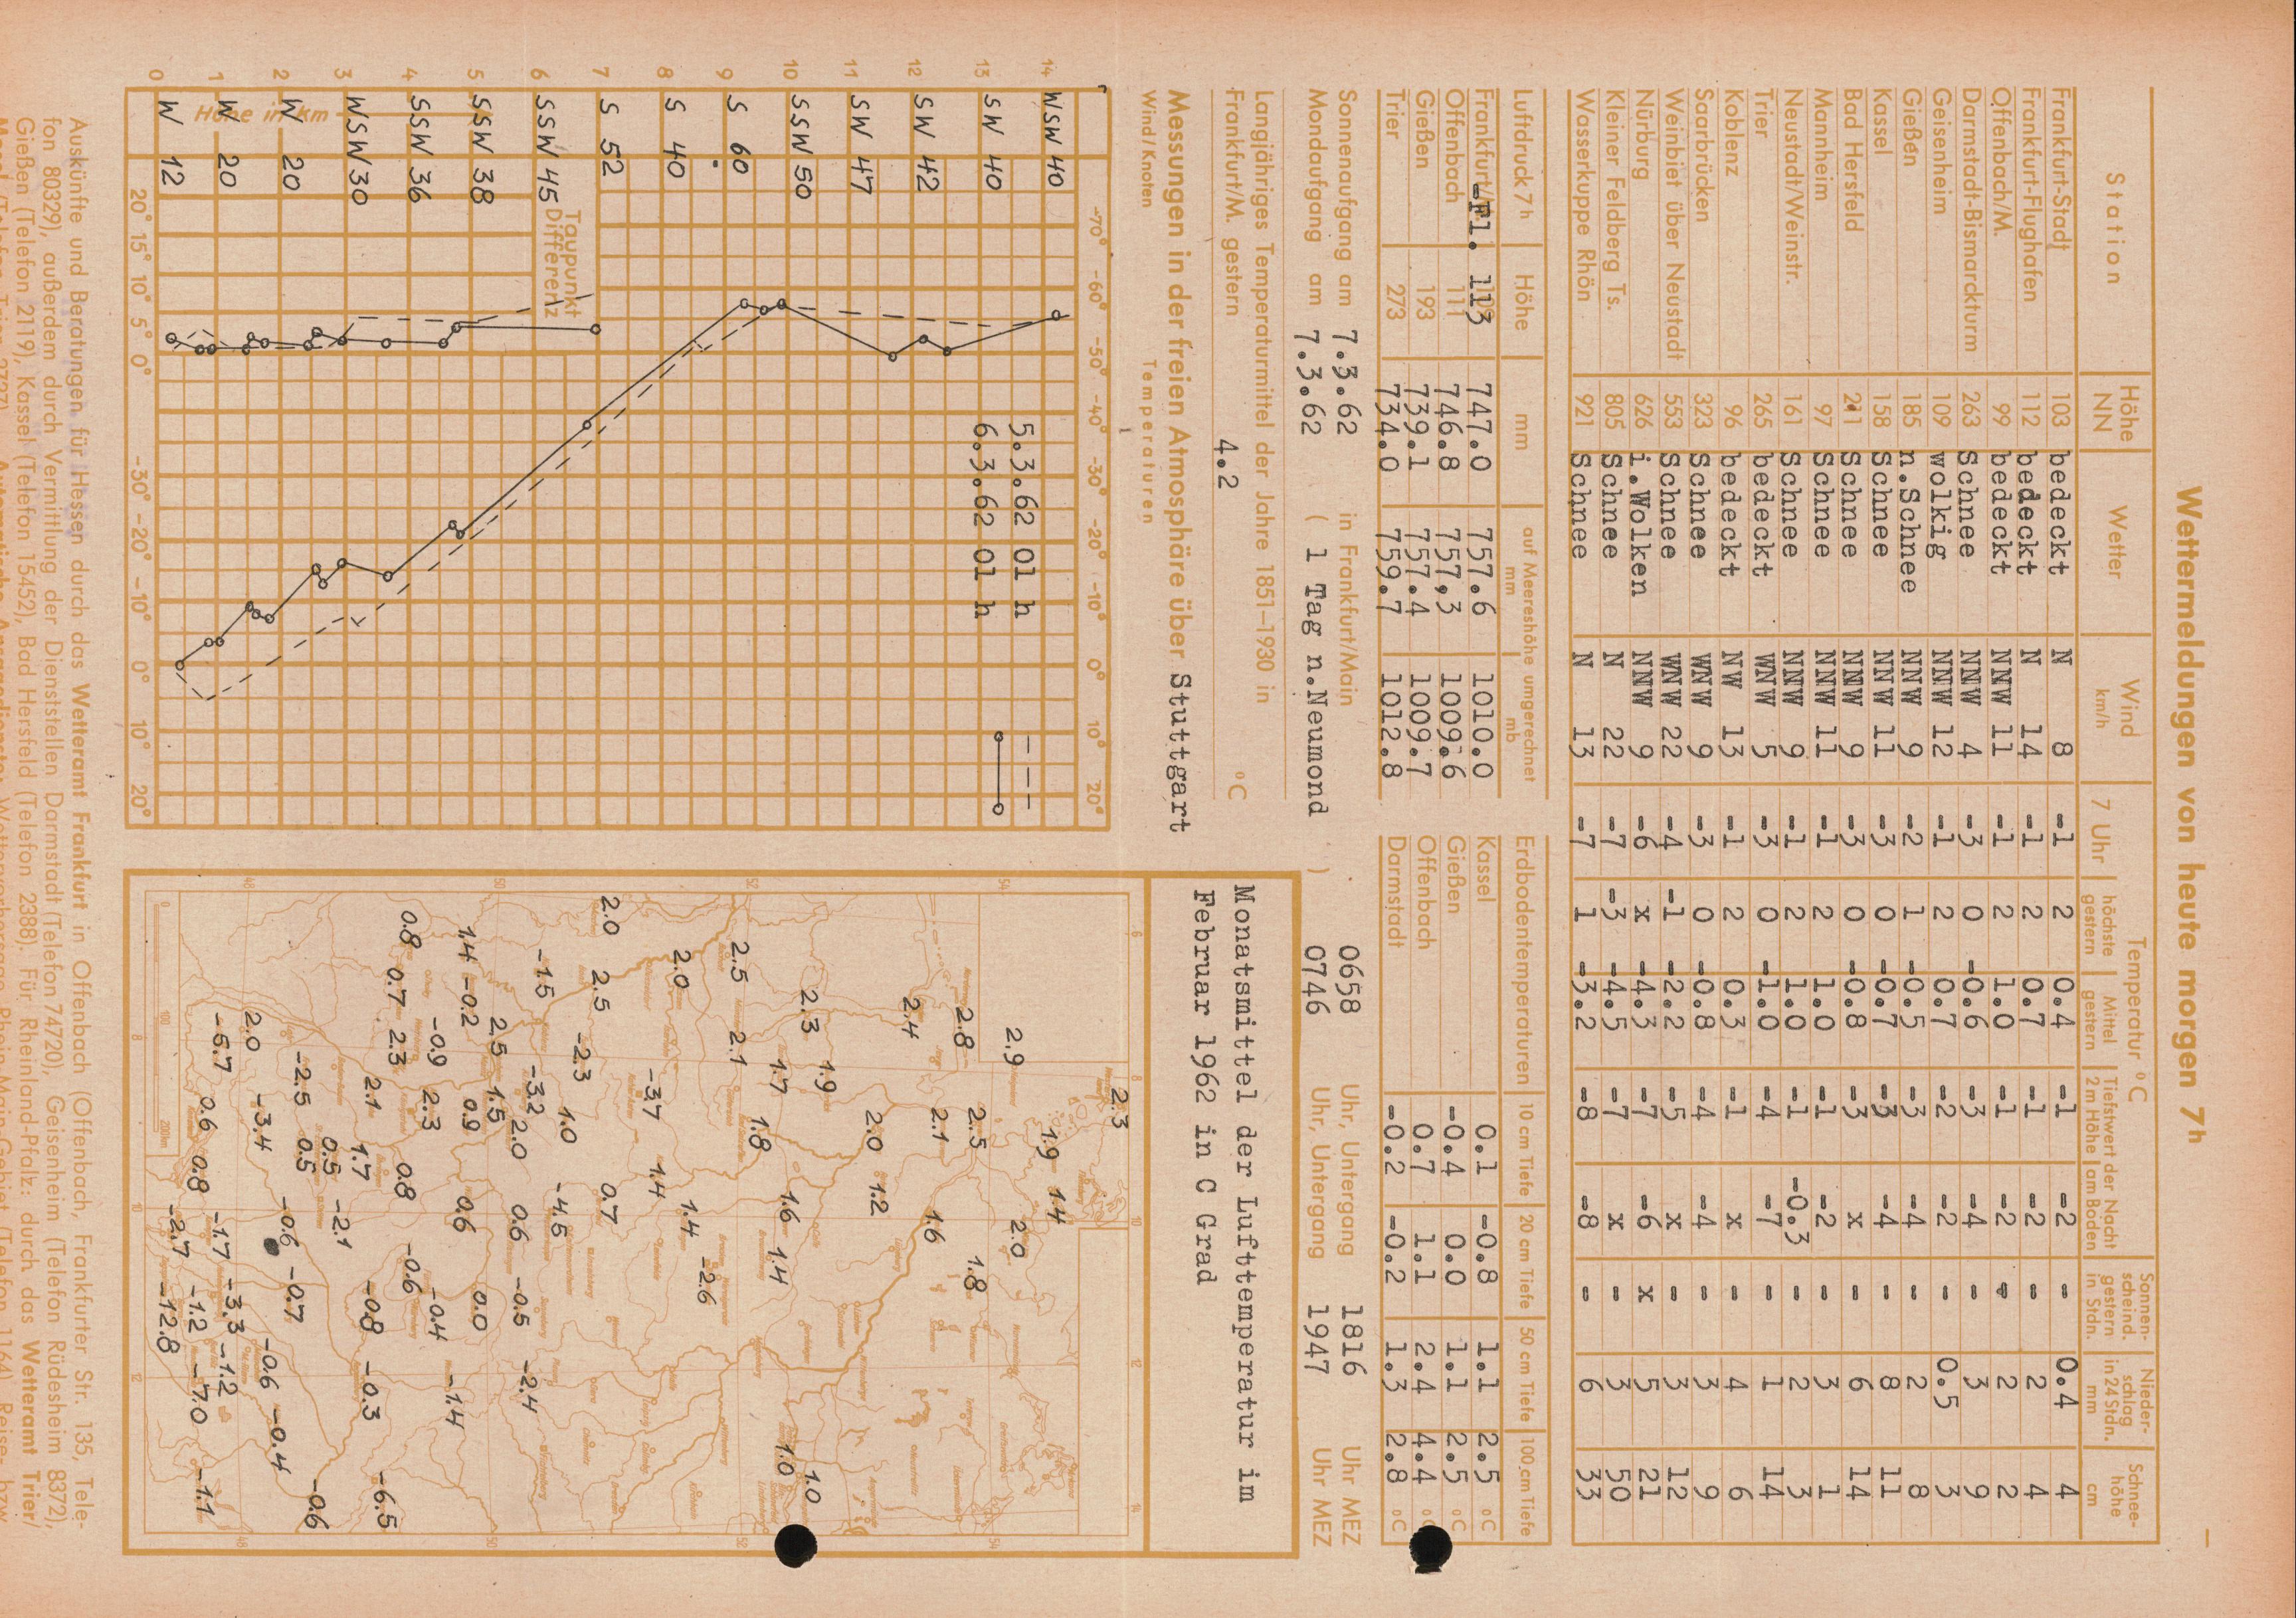 Wettermeldungen von heute morgen 7h
Station Höhe NN Wetter Wind km/h Temperatur °C 7 Uhr höchste gestern Mittel gestern Tiefstwert der Nacht 2 m Höhe am Boden Sonnen-scheind. gestern in Stdn. Nieder-schlag in 24 Stdn. mm Schnee-höhe cm
Frankfurt-Stadt 103 bedeckt N 8 -1 2 0.4 -1 -2 - 0.4 4
Frankfurt-Flughafen 112 bedeckt N 14 -1 2 0.7 -1 -2 - 2 4
Offenbach/M. 99 bedeckt NNW 11 -1 2 1.0 -1 -2 - 2 2
Darmstadt-Bismarckturm 263 Schnee NNW 4 -3 0 -0.6 -3 -4 - 3 9
Geisenheim 109 wolkig NNW 12 -1 2 0.7 -2 -2 - 0.5 3
Gießen 185 n.Schnee NNW 9 -2 1 -0.5 -3 -4 - 2 8
Kassel 158 Schnee NNW 11 -3 0 -0.7 -3 -4 - 8 11
Bad Hersfeld 211 Schnee NNW 9 -3 0 -0.8 -3 x - 6 14
Mannheim 97 Schnee NNW 11 -1 2 1.0 -1 -2 - 3 1
Neustadt/Weinstr. 161 Schnee NNW 9 -1 2 1.0 -1 -0.3 - 2 3
Trier 265 bedeckt WNW 5 -3 0 -1.0 -4 -7 - 1 14
Koblenz 96 bedeckt NW 13 -1 2 0.3 -1 x - 4 6
Saarbrücken 323 Schnee WNW 9 -3 0 -0.8 -4 -4 - 3 9
Weinbiet über Neustadt 553 Schnee WNW 22 -4 -1 -2.2 -5 x - 3 12
Nürburg 626 i.Wolken NNW 9 -6 x -4.3 -7 -6 x 5 21
Kleiner Feldberg Ts. 805 Schnee N 22 -7 -3 -4.5 -7 x - 3 50
Wasserkuppe Rhön 921 Schnee N 13 -7 1 -3.2 -8 -8 - 6 33
Luftdruck 7h Höhe mm auf Meereshöhe umgerechnet mm mb
Frankfurt/ -Fl. 113 747.0 757.6 1010.0
Offenbach 111 746.8 757,3 1009.6
Gießen 193 739.1 757.4 1009.7
Trier 273 734.0 759.7 1012.8
Erdbodentemperaturen 10 cm Tiefe 20 cm Tiefe 50 cm Tiefe 100 cm Tiefe
Kassel 0.1 -0.8 1.1 2.5 °C
Gießen -0.4 0.0 1.1 2.5 °C
Offenbach 0.7 1.1 2.4 4.4 °C
Darmstadt -0.2 -0.2 1.3 2.8 °C
Sonnenaufgang am 7.3.62 in Frankfurt/Main 0658 Uhr, Untergang 1816 Uhr MEZ
Mondaufgang am 7.3.62 ( 1 Tag n.Neumond ) 0746 Uhr, Untergang 1947 Uhr MEZ
Langjähriges Temperaturmittel der Jahre 1851–1930 in
Frankfurt/M. gestern 4.2 °C
Messungen in der freien Atmosphäre über Stuttgart
Wind/Knoten Temperaturen
-70° -60° -50° -40° -30° -20° -10° 0° 10° 20°
14 WSW 40
13 SW 40
12 SW 42
11 SW 47
10 SSW 50
9 S 60
8 S 40
7 S 52
6 SSW 45
5 SSW 38
4 SSW 36
3 WSW 30
2 W 20
1 W 20
0 W 12
Höhe in km
5.3.62 01 h
6.3.62 01 h
Taupunkt
Differenz
20° 15° 10° 5° 0° -30° -20° -10° 0° 10° 20°
Monatsmittel der Lufttemperatur im
Februar 1962 in C Grad
2.3
2.9 1.9 1.4
2.8 2.5 2.0
2.4 2.1 1.6 1.8
2.3 1.9 2.0 1.2
2.5 2.1 1.7 1.8 1.6 1.4 1.0 1.0
2.0 -3.7 1.4 1.4 -2.6
2.0 2.5 -2.3 1.0 0.7
-1.5 -3.2 2.0 -4.5
1.4 -0.2 2.5 1.5 0.9 0.6 0.6 -0.5 -2.4
0.8 0.7 2.3 -0.9 2.3 0.8 -0.6 -0.4 0.0 -1.4
2.1 1.7 -2.1 -0.8 -0.3 -6.5
-2.5 0.5 0.5 -0.6 -0.7 -0.6
2.0 -3.4 -0.6 -0.4
-5.7 0.6 0.8 -1.7 -3.3 -1.2
-2.7 -1.2 -7.0 -1.1
-12.8
Auskünfte und Beratungen für Hessen durch das Wetteramt Frankfurt in Offenbach (Offenbach, Frankfurter Str. 135, Tele-
fon 80329), außerdem durch Vermittlung der Dienststellen Darmstadt (Telefon 74720), Geisenheim (Telefon Rüdesheim 8372),
Gießen (Telefon 2119), Kassel (Telefon 15452), Bad Hersfeld (Telefon 2388). Für Rheinland-Pfalz: durch das Wetteramt Trier/